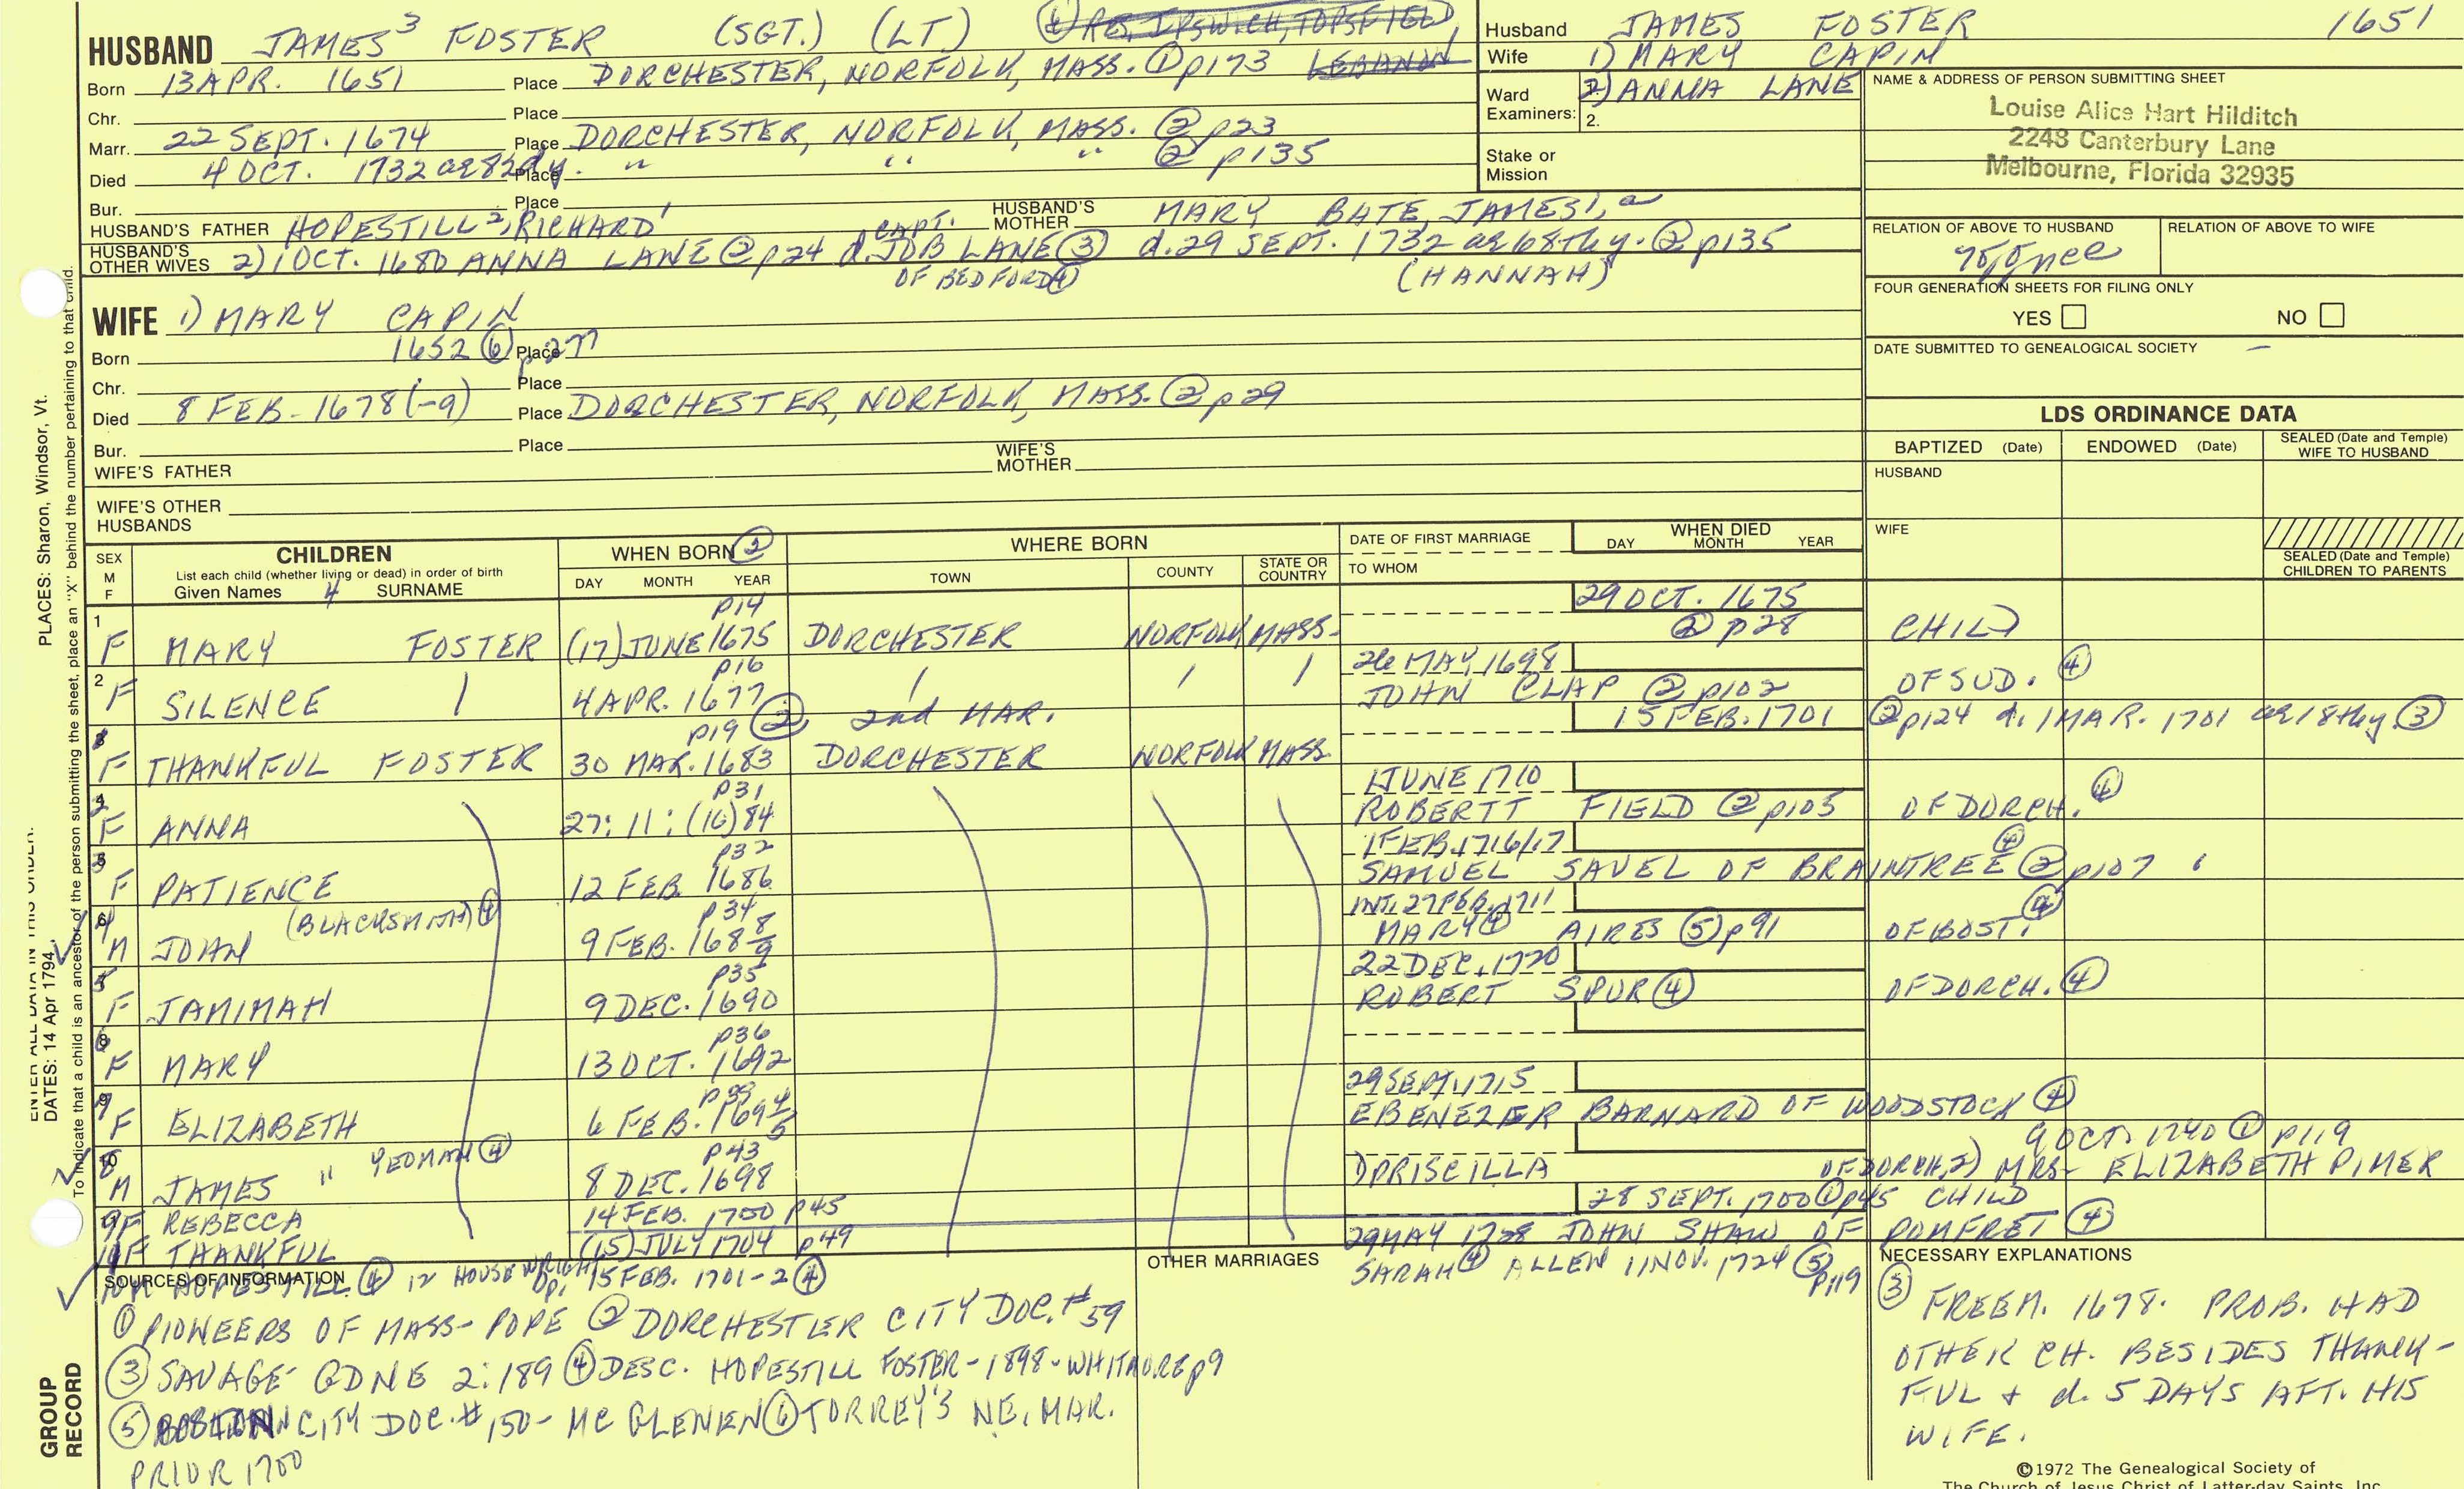 HUSBAND JAMES³ FOSTER (SGT.) (LT) ④ RES. IPSWICH, TOPSFIELD LEBANON
Born 13 APR. 1651 Place DORCHESTER, NORFOLK, MASS. ① p173
Chr. Place
Marr. 22 SEPT. 1674 Place DORCHESTER, NORFOLK, MASS. ② p23
Died 4 OCT. 1732 ae 82d y. Place " " " ② p135
Bur. Place
HUSBAND'S FATHER HOPESTILL², RICHARD¹ HUSBAND'S MOTHER MARY BATE, JAMES1, a
HUSBAND'S OTHER WIVES 2) 1 OCT. 1680 ANNA LANE ② p24 d. CAPT. JOB LANE ③ d. 29 SEPT. 1732 ae 68th y. ② p135
OF BEDFORD ④ (HANNAH)
WIFE 1) MARY CAPIN
Born 1652 ⑥ p277 Place
Chr. Place
Died 8 FEB - 1678 (-9) Place DORCHESTER, NORFOLK, MASS. ② p29
Bur. Place
WIFE'S FATHER WIFE'S MOTHER
WIFE'S OTHER HUSBANDS
Husband JAMES FOSTER 1651
Wife 1) MARY CAPIN
2) ANNA LANE
Ward Examiners: 2.
Stake or Mission
NAME & ADDRESS OF PERSON SUBMITTING SHEET
Louise Alice Hart Hilditch
2248 Canterbury Lane
Melbourne, Florida 32935
RELATION OF ABOVE TO HUSBAND RELATION OF ABOVE TO WIFE
FOUR GENERATION SHEETS FOR FILING ONLY
YES NO
DATE SUBMITTED TO GENEALOGICAL SOCIETY –
LDS ORDINANCE DATA
BAPTIZED (Date) ENDOWED (Date) SEALED (Date and Temple) WIFE TO HUSBAND
HUSBAND
WIFE
SEALED (Date and Temple) CHILDREN TO PARENTS
SEX M F CHILDREN List each child (whether living or dead) in order of birth Given Names 4 SURNAME
WHEN BORN ② DAY MONTH YEAR
WHERE BORN TOWN COUNTY STATE OR COUNTRY
DATE OF FIRST MARRIAGE TO WHOM
WHEN DIED DAY MONTH YEAR
p14 29 OCT. 1675
1 F MARY FOSTER (17) JUNE 1675 DORCHESTER NORFOLK MASS. ② p28 CHILD
p16 26 MAY, 1698
2 F SILENCE 4 APR. 1677 JOHN CLAP ② p102 OF SUD. ④
p19 ② 2nd MAR. 15 FEB. 1701 ② p124 d. 1 MAR. 1701 ae 18th y. ③
F THANKFUL FOSTER 30 MAR. 1683 DORCHESTER NORFOLK MASS.
p31 1 JUNE 1710
F ANNA 27: 11: (16) 84 ROBERTT FIELD ② p105 OF DORCH. ④
p32 1 FEB. 1716/17
F PATIENCE 12 FEB. 1686 SAMUEL SAVEL OF BRAINTREE ④ ② p107
(BLACKSMITH) ④ p34 INT. 27 FEB. 1711
M JOHN 9 FEB. 1688/9 MARY ④ AIRES ⑤ p91 OF BOST. ④
p35 22 DEC. 1720
F JAMIMAH 9 DEC. 1690 ROBERT SPUR ④ OF DORCH. ④
p36
F MARY 13 OCT. 1692
p39 29 SEPT. 1715
9 F ELIZABETH 6 FEB. 1694/5 EBENEZER BARNARD OF WOODSTOCK ④
YEOMAN ④ p43 9 OCT. 1740 ① p119
10 M JAMES " 8 DEC. 1698 1) PRISCILLA OF DORCH, 2) MRS- ELIZABETH PIMER
9 F REBECCA 14 FEB. 1700 p45 28 SEPT. 1700 ① p45 CHILD
F THANKFUL (15) JULY 1704 p49 29 MAY 1728 JOHN SHAW OF POMFRET ④
M HOPESTILL ④ 12 HOUSEWRIGHT 15 FEB. 1701-2 ④ SARAH ④ ALLEN 11 NOV. 1724 ⑤ p119
SOURCES OF INFORMATION
OTHER MARRIAGES
① PIONEERS OF MASS - POPE ② DORCHESTER CITY DOC. # 59
③ SAVAGE - GDNE 2:189 ④ DESC. HOPESTILL FOSTER - 1898 - WHITMORE p9
⑤ BOSTON CITY DOC. # 150 - MC GLENEN ⑥ TORREY'S NE. MAR.
PRIOR 1700
NECESSARY EXPLANATIONS
③ FREEM. 1678. PROB. HAD
OTHER CH. BESIDES THANK-
FUL + d. 5 DAYS AFT. HIS
WIFE.
©1972 The Genealogical Society of
The Church of Jesus Christ of Latter-day Saints, Inc.
PLACES: Sharon, Windsor, Vt.
ENTER ALL DATA IN THIS ORDER:
DATES: 14 Apr 1794.
To indicate that a child is an ancestor of the person submitting the sheet, place an "X" behind the number pertaining to that child.
GROUP RECORD